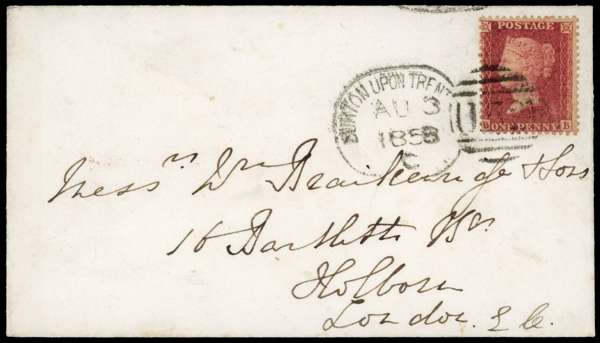 POSTAGE
ONE PENNY
B
BURTON UPON TRENT
AU 3
1858
C
Mess rs Wm Braikenridge & Sons
16 Bartletts Bgs
Holborn
London E C.